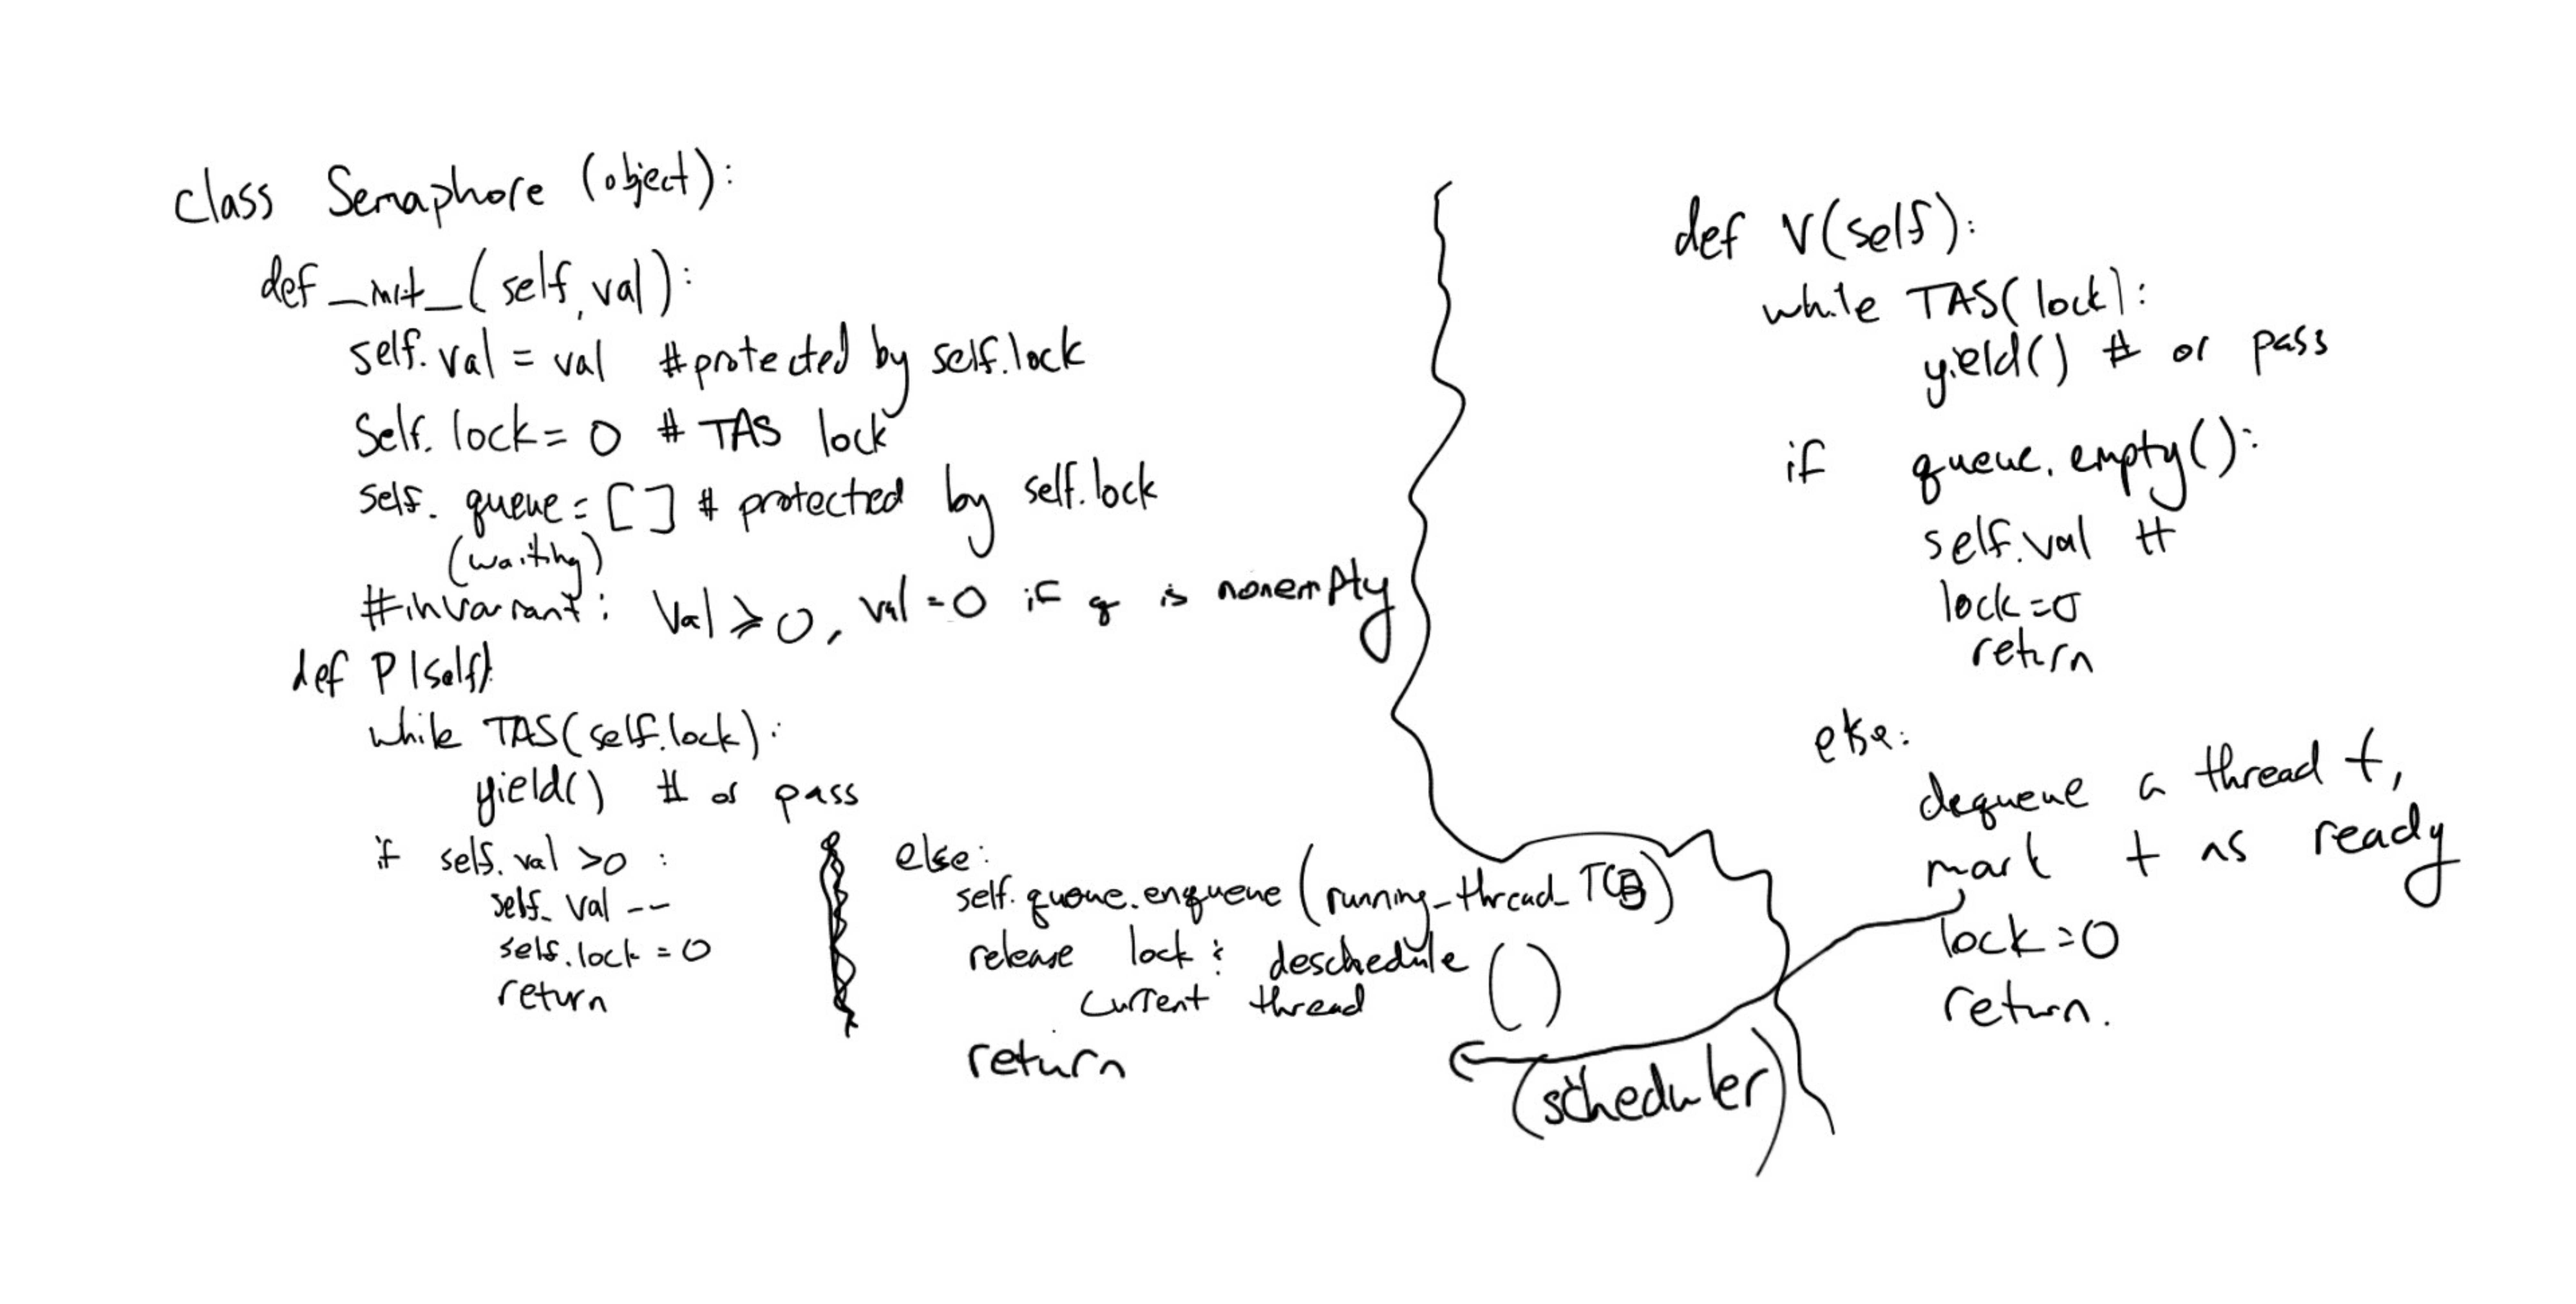 class Semaphore (object):
def _init_(self, val):
self.val = val #protected by self.lock
Self.lock = 0 # TAS lock
self.queue = [] # protected by self.lock
(waiting)
#invariant: Val ≥ 0, val = 0 if q is nonempty
def P(self):
while TAS(self.lock):
yield() # or pass
if self.val >0 :
self.val --
self.lock = 0
return
else:
self.queue.enqueue(running_thread_TCB)
release lock & deschedule ()
current thread
return
(scheduler)
def V(self):
while TAS(lock):
yield() # or pass
if queue.empty():
self.val ++
lock=0
return
else:
dequeue a thread t,
mark t as ready
lock=0
return.